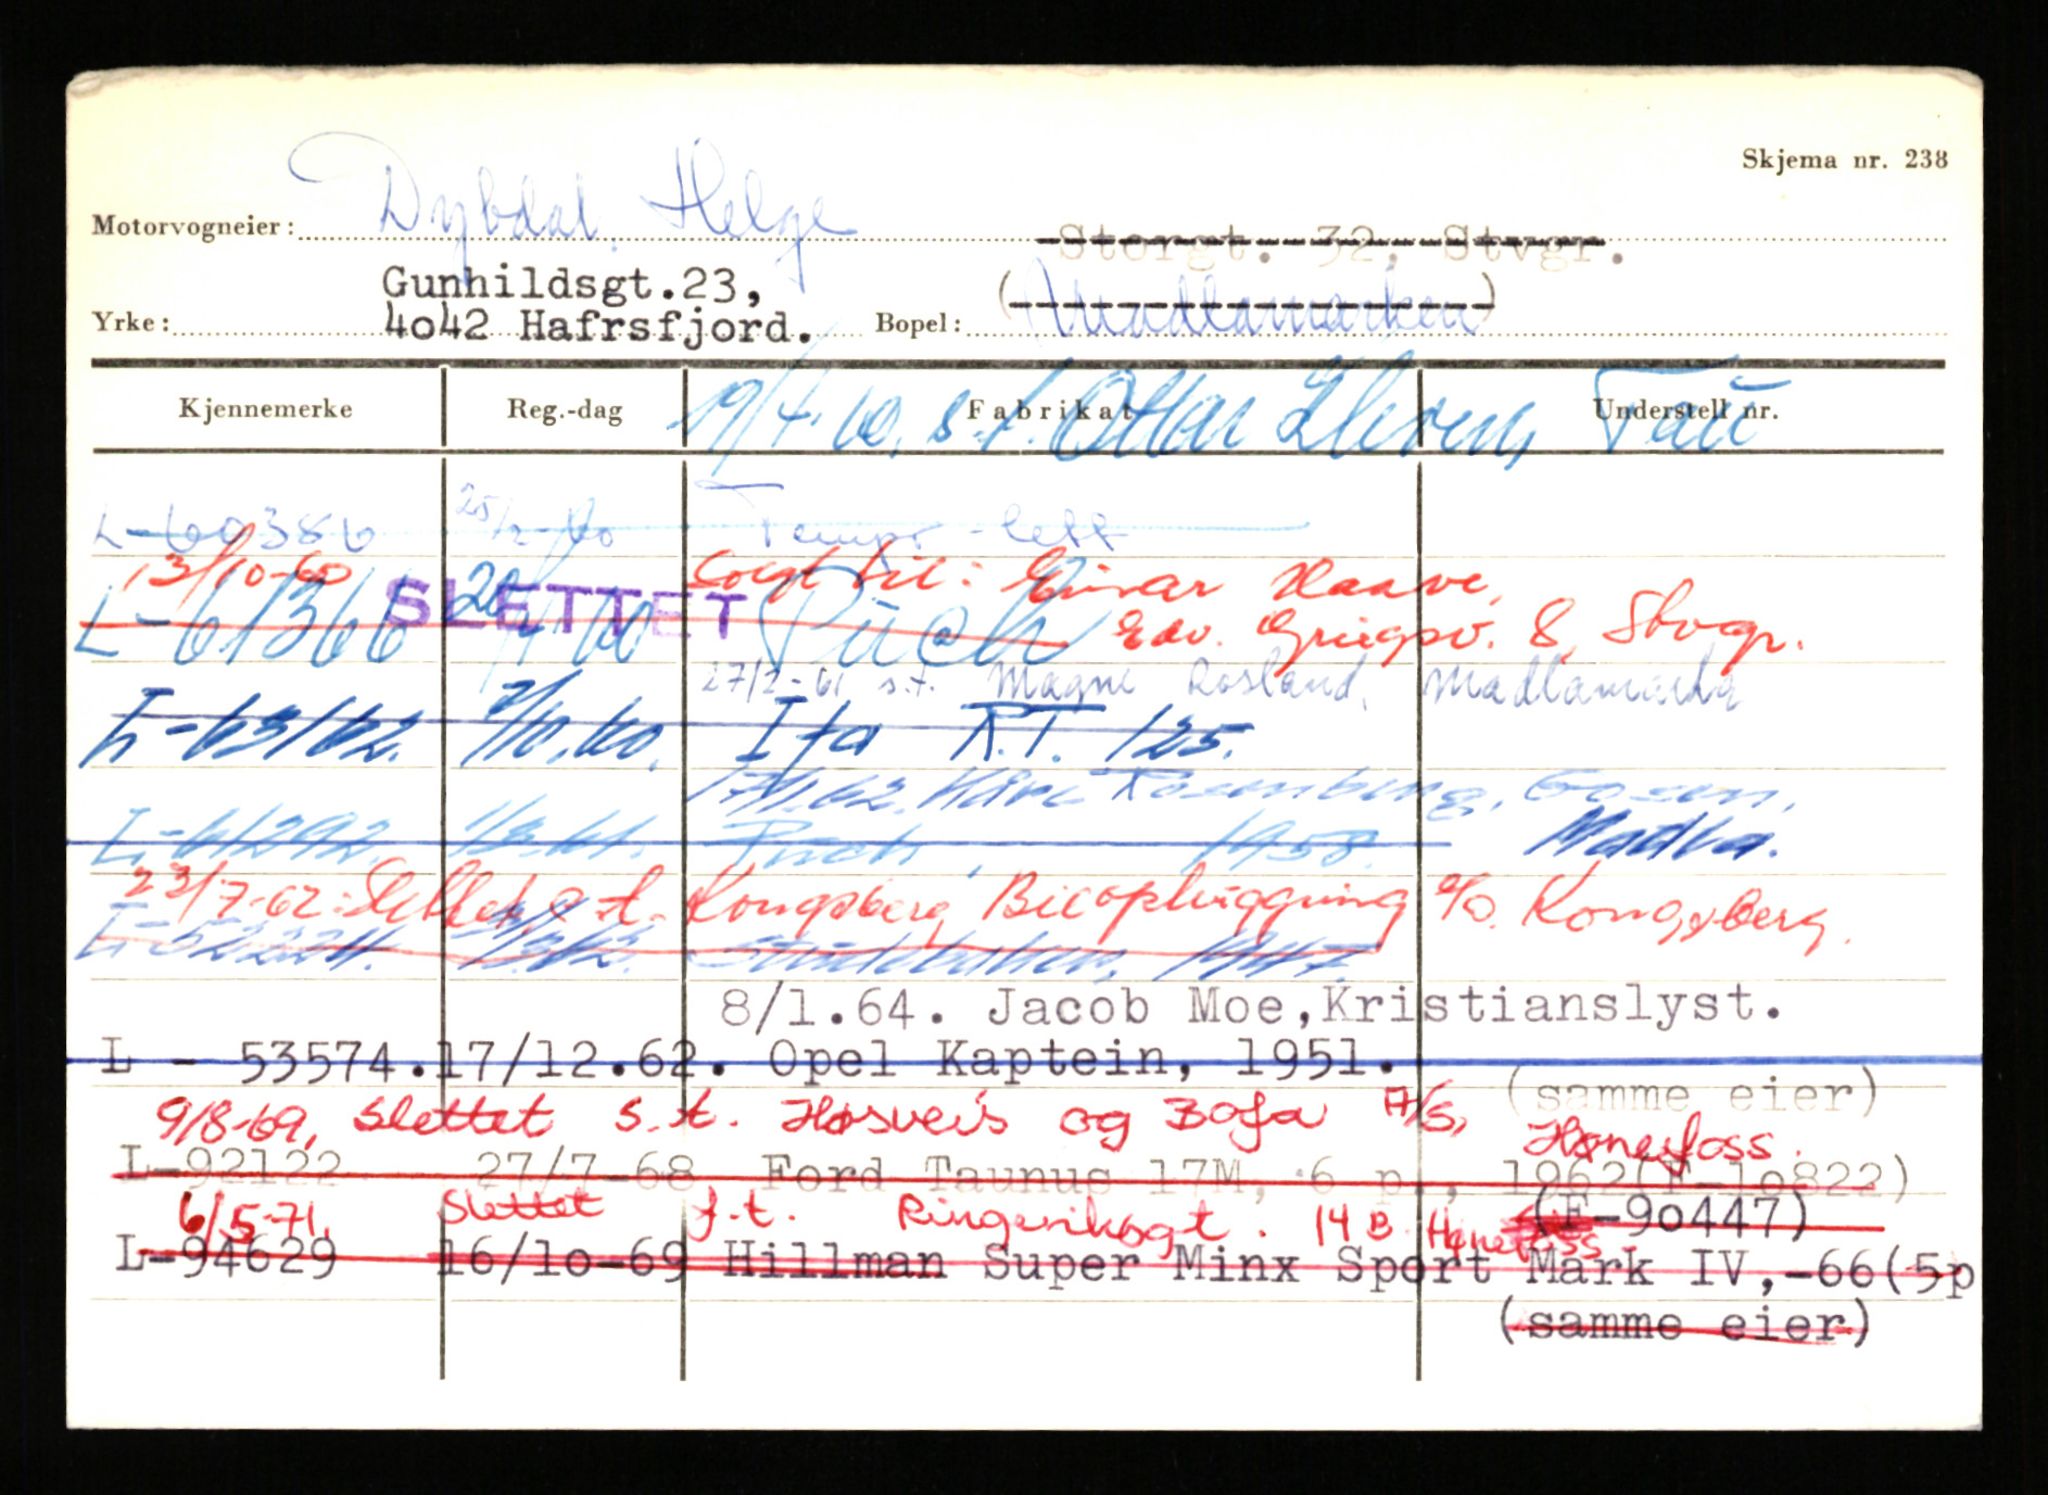 Skjema nr. 238
Motorvogneier: Dybdal, Helge Storgt. 32, Stvgr.
Gunhildsgt.23, (Madlamarken)
Yrke: 4o42 Hafrsfjord. Bopel:
19/4.60. s.t. Ottar Tau
Kjennemerke Reg.-dag Fabrikat Understell nr.
L-60386 25/2-60 Tempo - lett
13/10-60 Solgt til: Einar Haave,
SLETTET
Edv. Griegsv. 8, Stvgr.
L-61366 20/4 60 Puch
27/2-61 s.t. Magne Rosland, Madlamarka
L-63162. 7/10.60. Ifa R.T. 125.
17/1.62. Kåre Rosenberg, Gosen,
Madla.
L-61292. 1/3.61. Puch, 1958.
23/7-62: Slettet s.t. Kongsberg Bilopphugging %. Kongsberg.
L-52224. /3.62. Studebaker, 1947.
8/1.64. Jacob Moe,Kristianslyst.
L - 53574. 17/12.62. Opel Kaptein, 1951.
(samme eier)
9/8-69, Slettet s.t. Høsveis og Bofa A/S, Hønefoss.
L-92122 27/7-68 Ford Taunus 17M, 6 p., 1962(F-1o822)
6/5-71. Slettet f.t. Ringeriksgt. 14 B. Hønefoss
(F-9o447)
L-94629 16/1o-69 Hillman Super Minx Sport Mark IV,-66(5p
(samme eier)